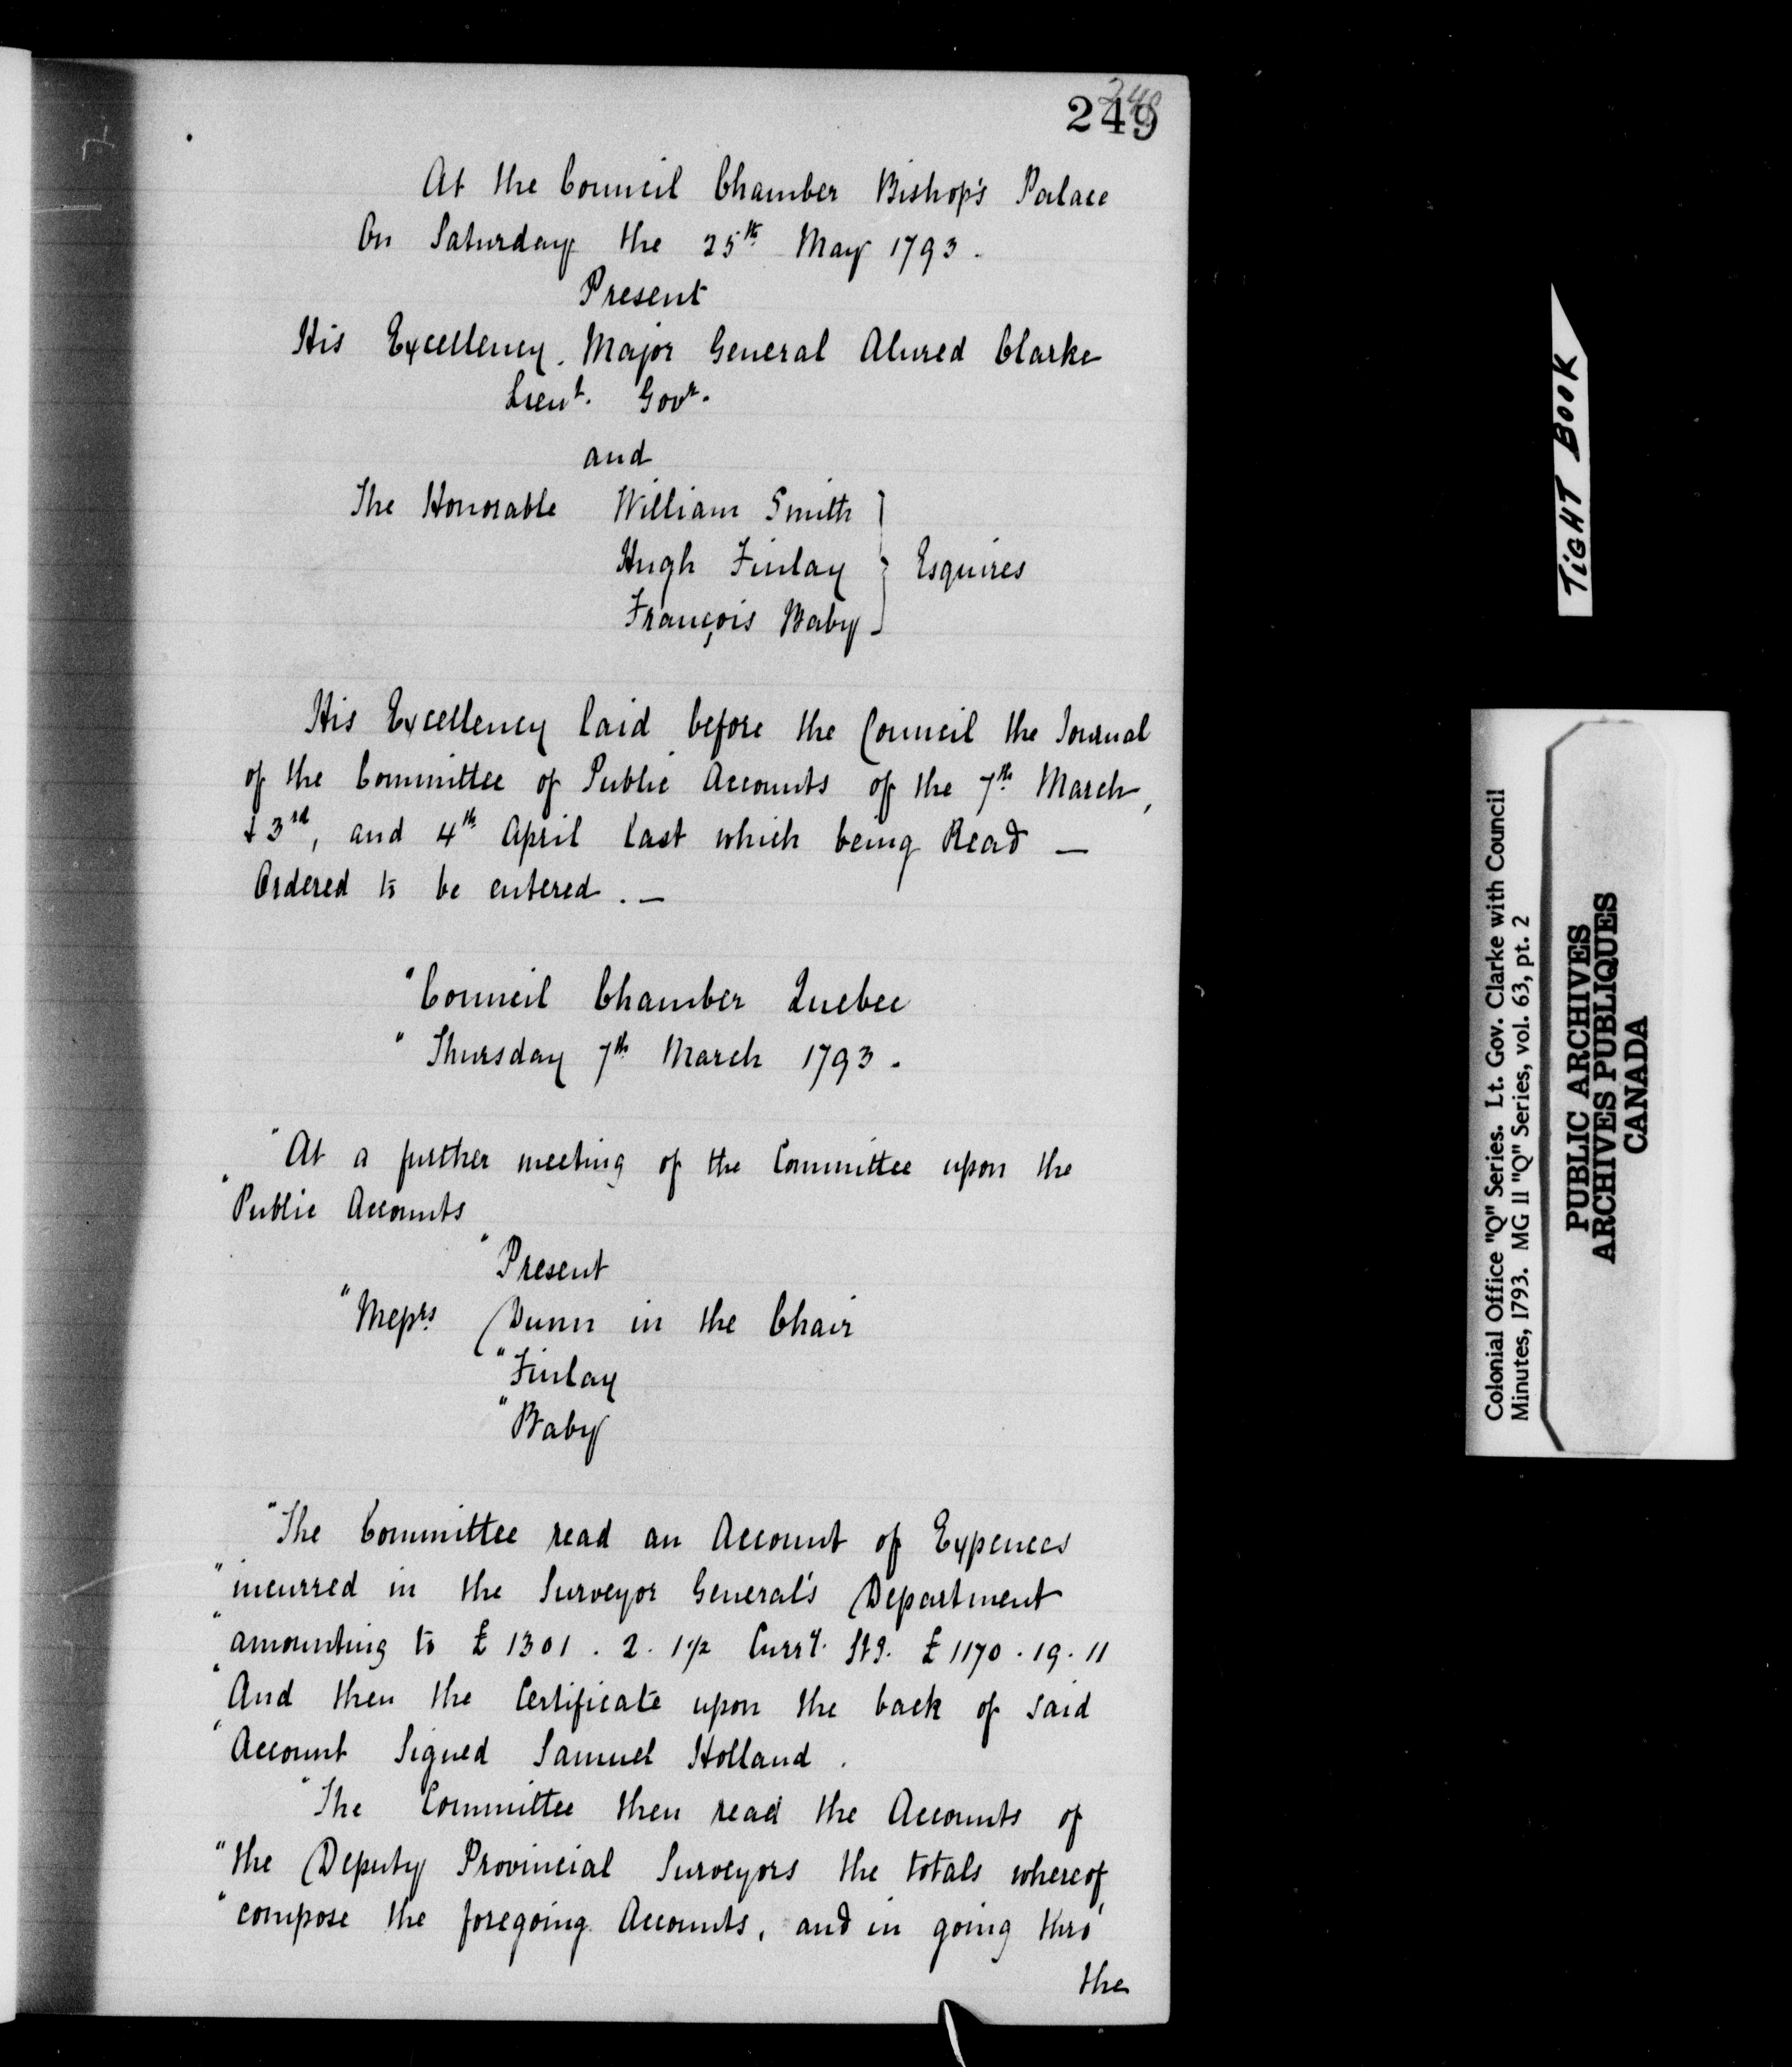 249
248
At the Council Chamber Bishop's Palace
On Saturday the 25th May 1793.
Present
His Excellency Major General Alured Clarke
Lieut. Govr.
and
The Honorable William Smith
Hugh Finlay } Esquires
François Baby
His Excellency laid before the Council the Journal
of the Committee of Public Accounts of the 7th March,
& 3rd, and 4th April last which being Read —
Ordered to be entered. —
"Council Chamber Quebec
" Thursday 7th March 1793.
"At a further meeting of the Committee upon the
"Public Accounts
"Present
"Messrs Dunn in the Chair
"Finlay
"Baby
"The Committee read an Account of Expences
"incurred in the Surveyor General's Department
"amounting to £1301. 2. 1½ Curry. Stg. £1170. 19. 11
"And then the Certificate upon the back of said
"Account Signed Samuel Holland.
"The Committee then read the Accounts of
"the Deputy Provincial Surveyors the totals whereof
"compose the foregoing Accounts, and in going thro'
the
TIGHT BOOK
Colonial Office "Q" Series. Lt. Gov. Clarke with Council
Minutes, 1793. MG 11 "Q" Series, vol. 63, pt. 2
PUBLIC ARCHIVES
ARCHIVES PUBLIQUES
CANADA